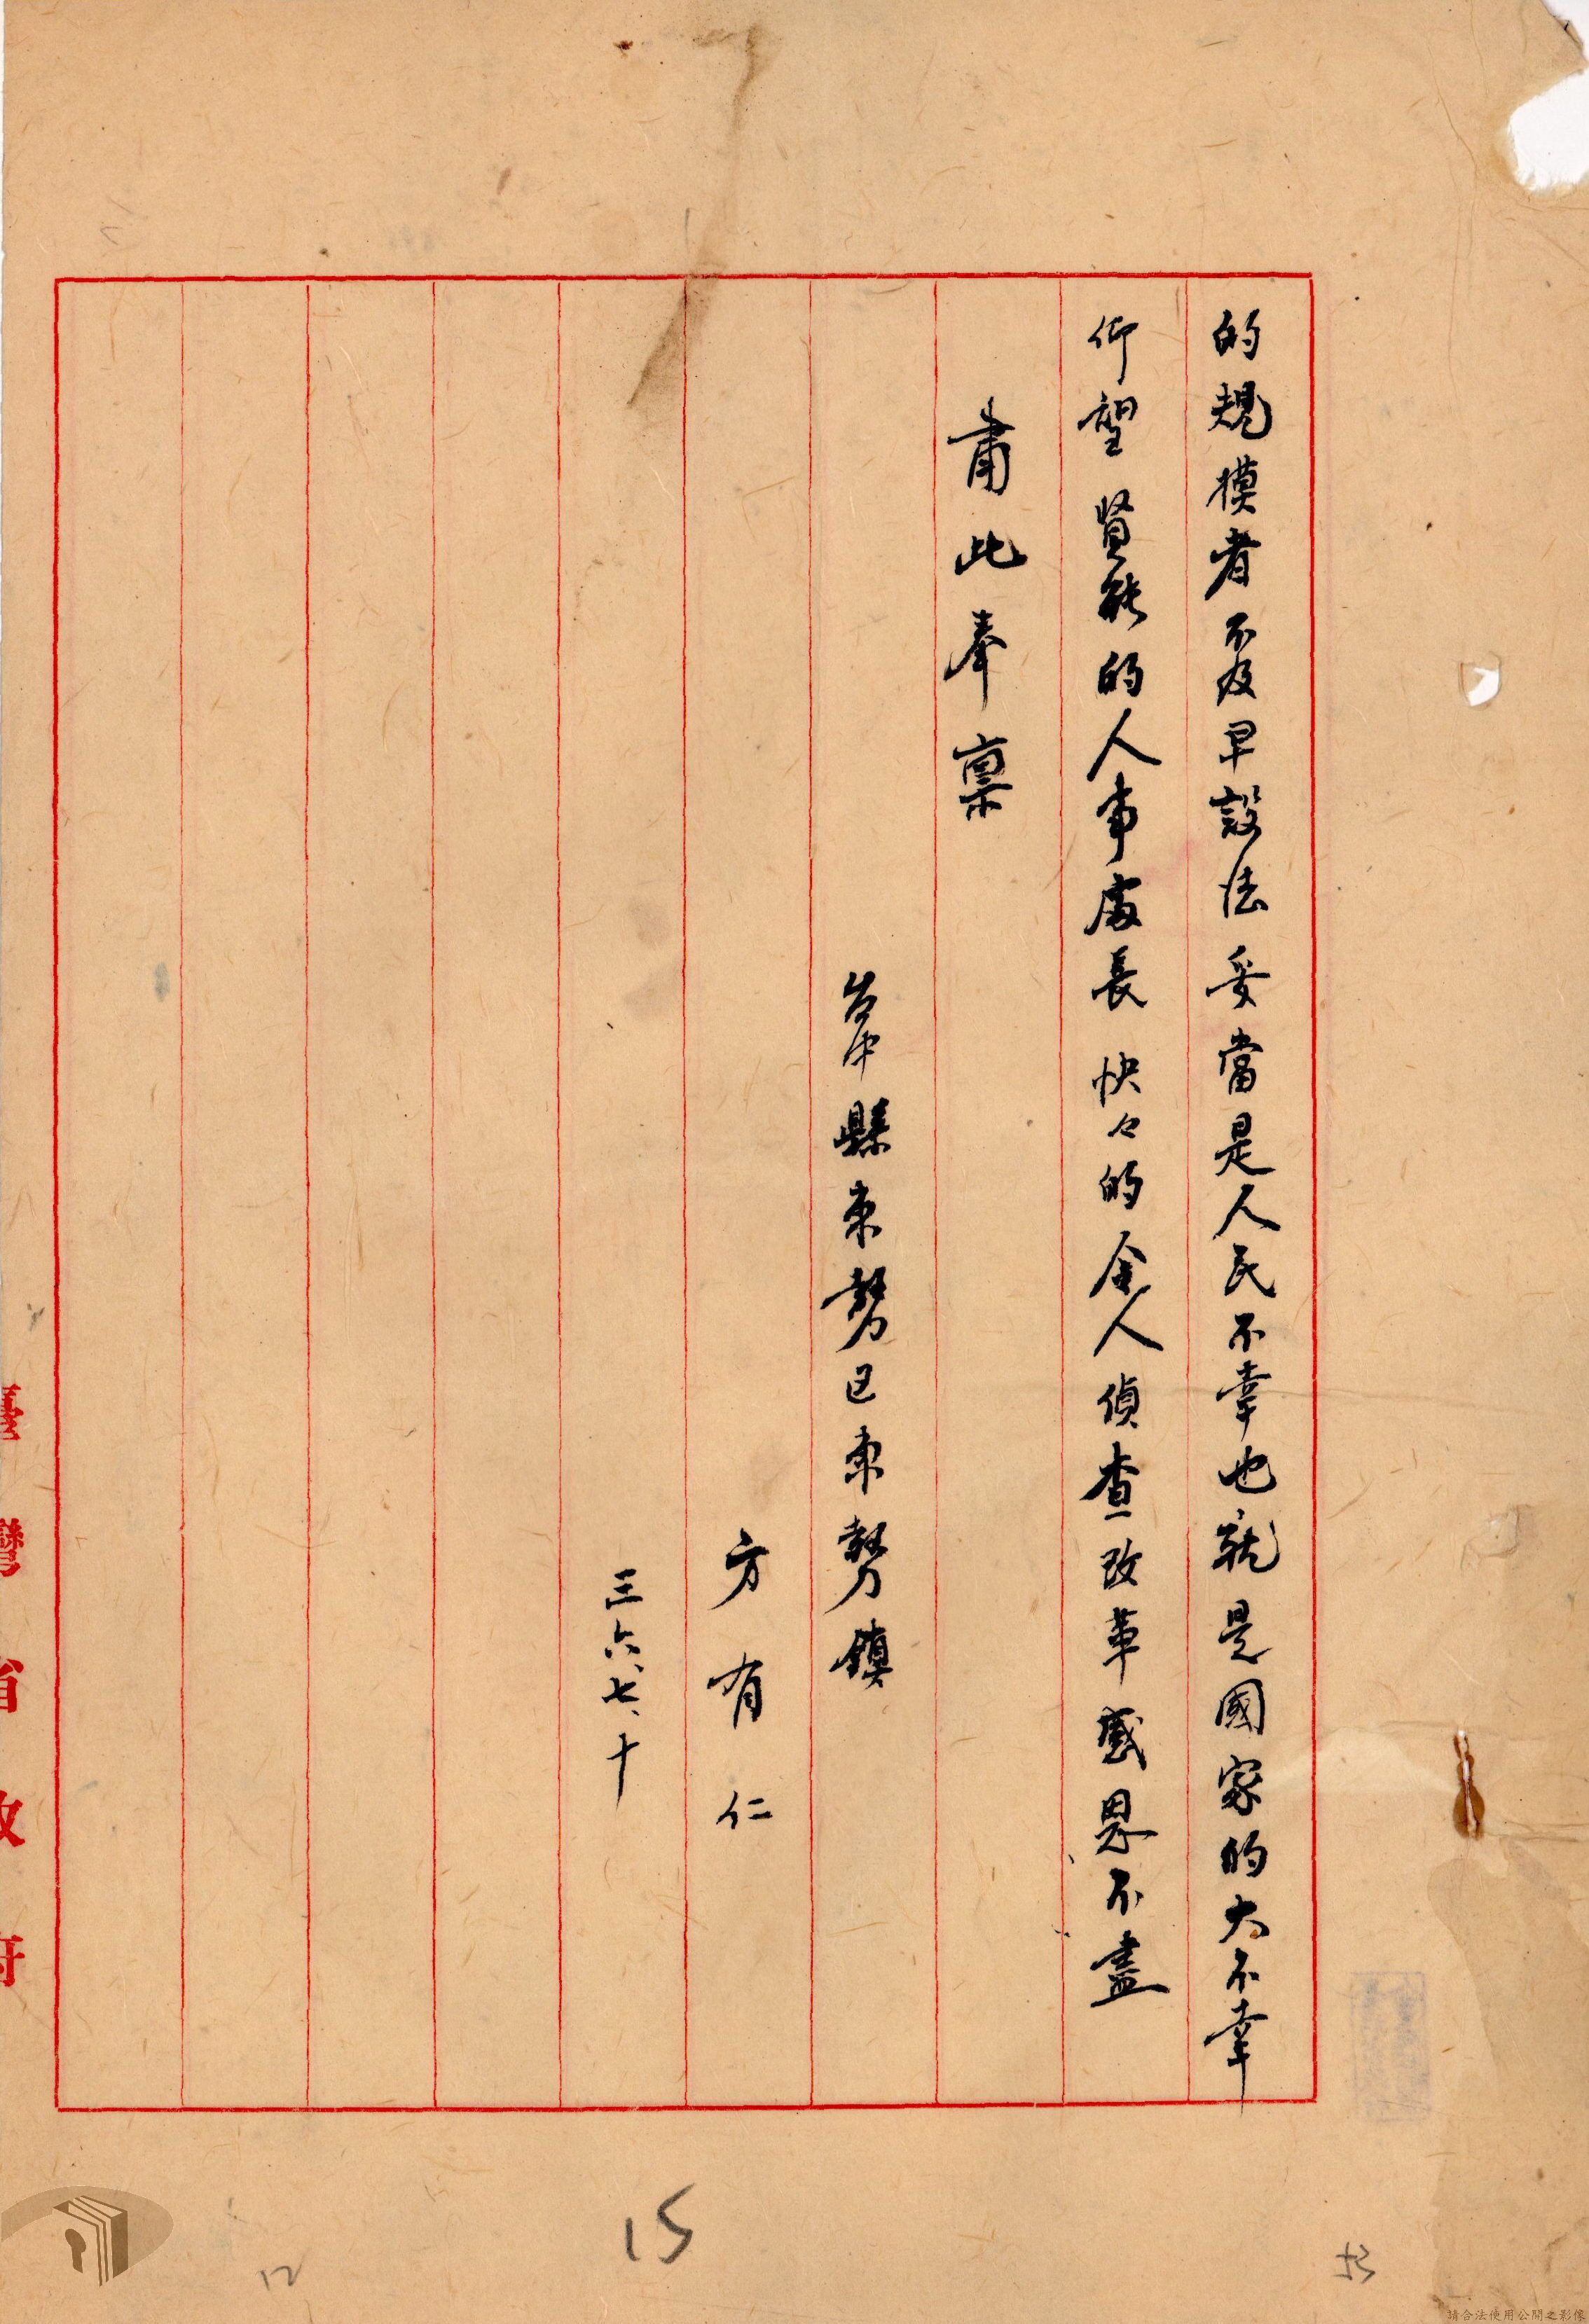 的規模者不及早設法妥當是人民不幸也就是國家的大不幸
仰望賢能的人事處長快々的令人偵查改革感恩不盡
肅此奉稟
台中縣東勢區東勢鎮
方有仁
三六、七、十
臺灣省政府
15
12
請合法使用公開之影像